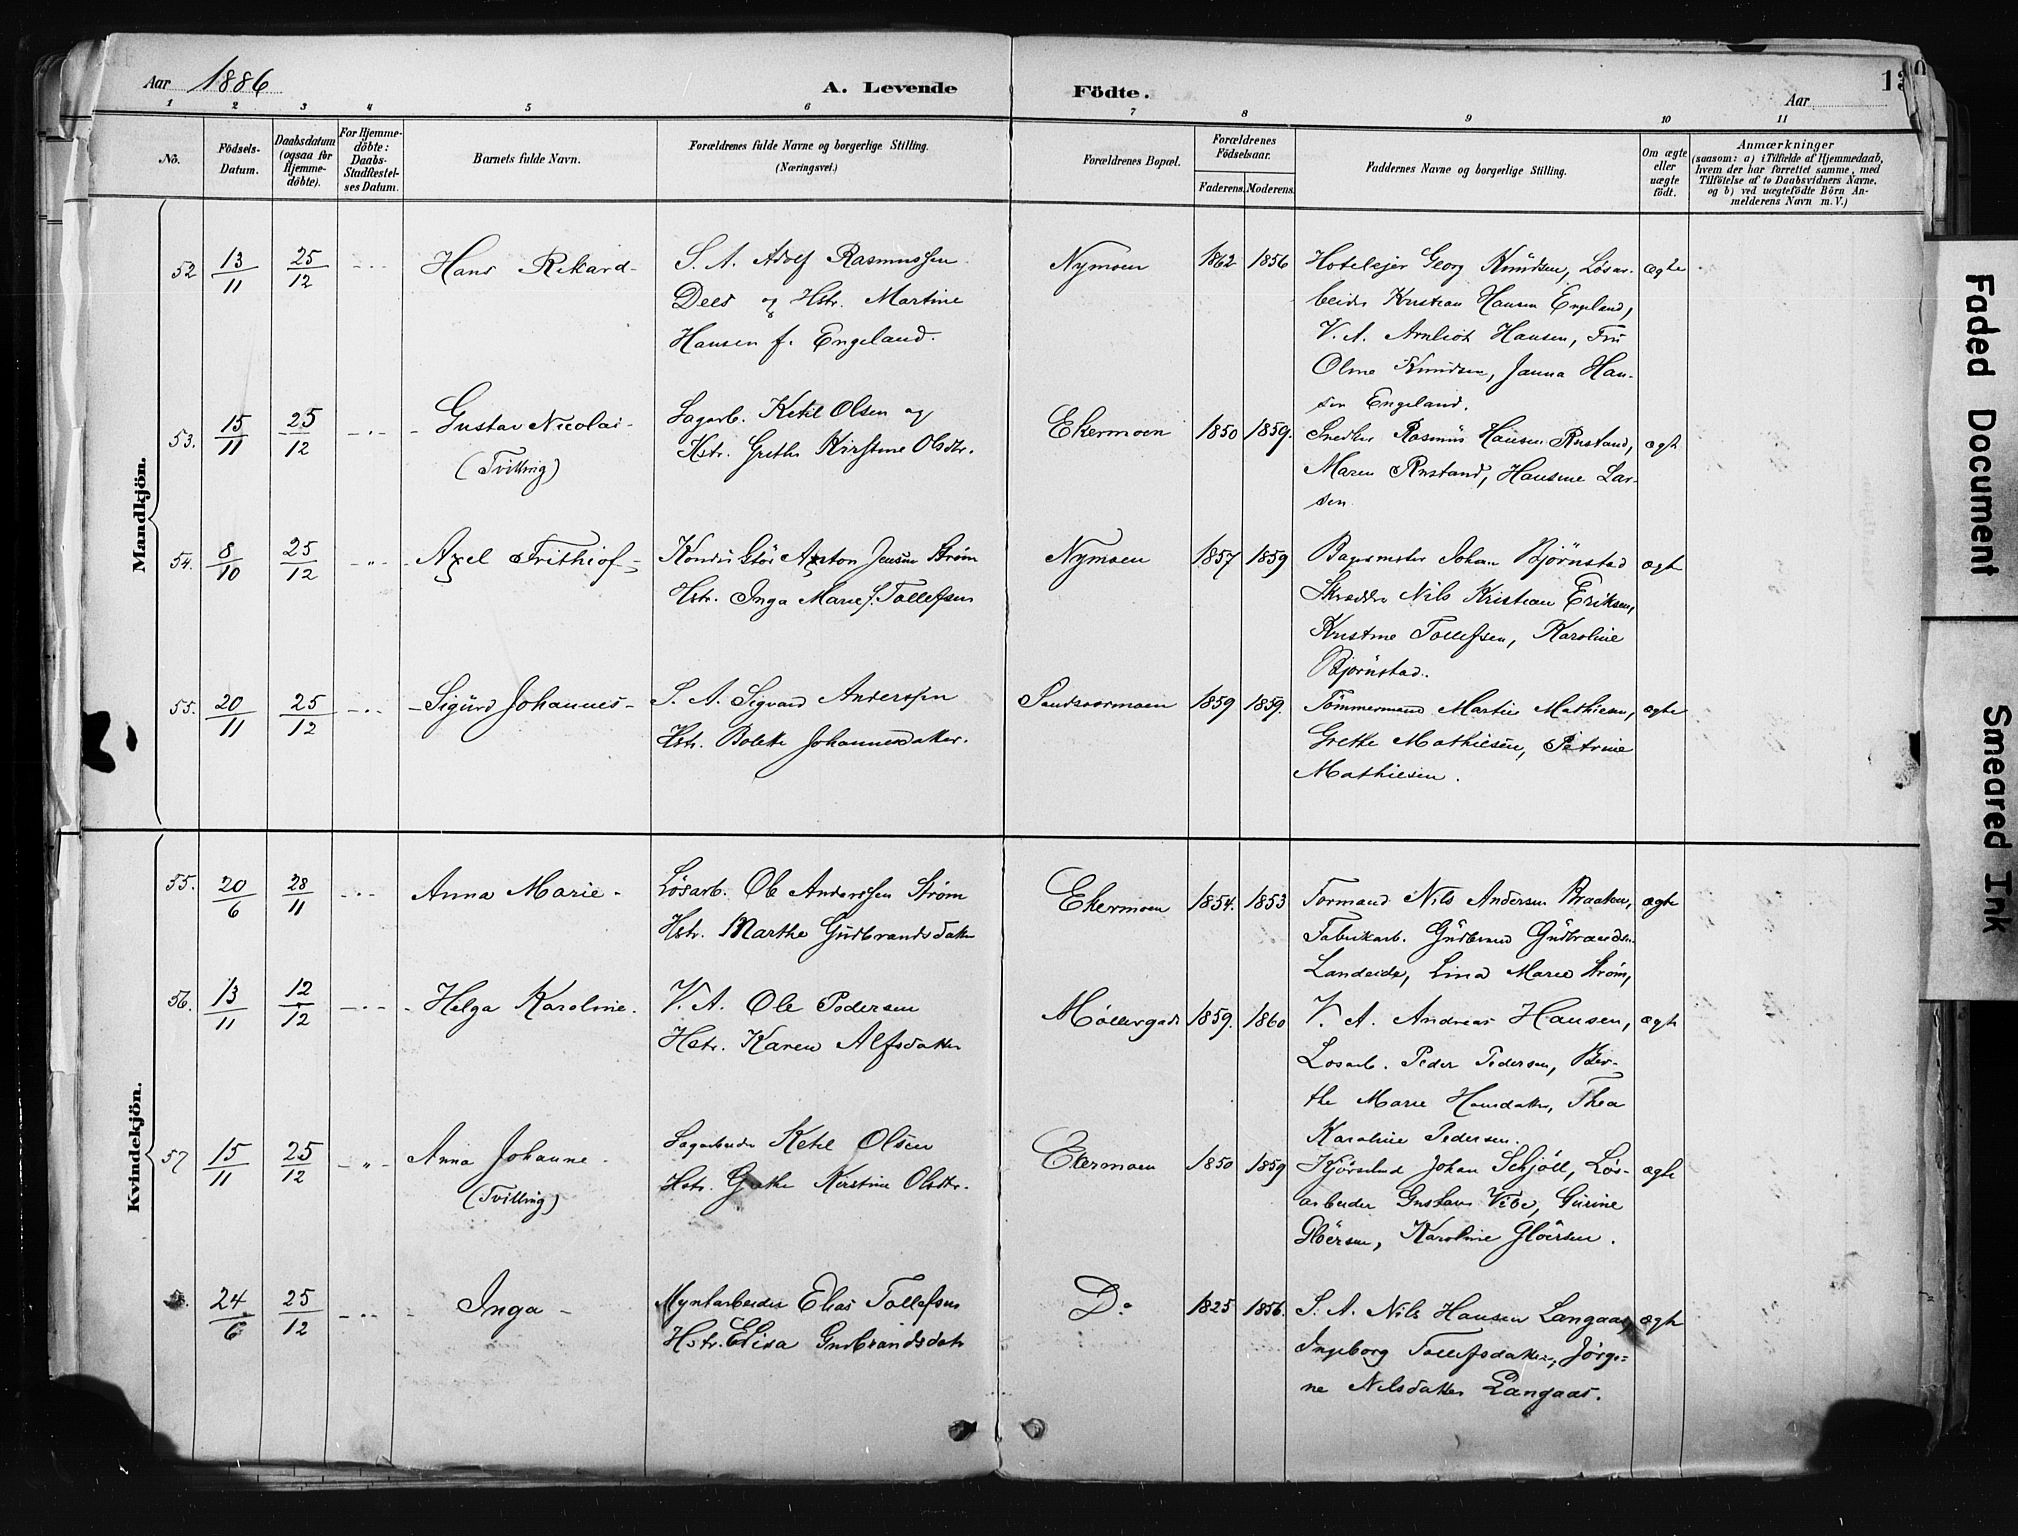 Aar 1886
A. Levende Födte.
Aar
13
1 2 3 4 5 6 7 8 9 10 11
No.
Födsels-
Datum.
Daabsdatum
(ogsaa for
Hjemme-
döbte).
For Hjemme-
döbte:
Daabs-
Stadfæstel-
ses Datum.
Barnets fulde Navn.
Forældrenes fulde Navne og borgerlige Stilling.
(Næringsvei.)
Forældrenes Bopæl.
Forældrenes
Födselsaar.
Faderens. Moderens.
Faddernes Navne og borgerlige Stilling.
Om ægte
eller
uægte
födt.
Anmærkninger
(saasom: a) i Tilfælde af Hjemmedaab,
hvem der har forrettet samme, med
Tilföielse af to Daabsvidners Navne,
og b) ved uægtefödte Börn An-
melderens Navn m. V.)
Mandkjön.
52 13/11 25/12 Hans Rikard
S. A. Adolf Rasmussen
Dees og Hstr. Martine
Hansen f. Engeland.
Nymoen 1862 1856
Hoteleier Georg Knudsen, Løsar-
beider Kristian Hansen Engeland,
V. A. Arnliot Hansen, Fru
Olme Knudsen, Janna Han-
sen Engeland.
ægte
53. 15/11 25/12 Gustav Nicolai
(Tvilling)
Sagarb. Ketil Olsen og
Hstr. Grethe Kirstine Olsdtr.
Ekermoen 1850 1859.
Snedker Rasmus Hansen Rustand,
Maren Rustand, Hansine Lar-
sen
ægte
54. 8/10 25/12 Axel Frithiof
Konduktör Anton Jensen Strøm
Hstr. Inga Marie f. Tollefsen
Nymoen 1857 1859
Bagermester Johan Bjørnstad
Skrædder Nils Kristian Eriksen,
Kristine Tollefsen, Karoline
Bjørnstad.
ægte
55. 20/11 25/12 Sigurd Johannes
S. A. Sigvard Anderssen
Hstr. Bolette Johannesdatter.
Sandsværmoen 1859 1859.
Tömmermand Martin Mathisen,
Grethe Mathiesen, Petrine
Mathiesen.
ægte
Kvindekjön.
55. 20/6 28/11 Anna Marie
Løsarb. Ole Anderssen Strøm
Hstr. Marthe Gudbrandsdatter
Ekermoen 1854. 1853
Formand Nils Andersen Braaten,
Fabrikarb. Gudbrand Gudbrandsen
Landeide, Lina Marie Strøm,
ægte
56. 13/11 12/12 Helga Karoline.
V. A. Ole Pedersen
Hstr. Karen Alfsdatter
Møllergade 1859. 1860
V. A. Andreas Hansen,
Løsarb. Peder Pedersen, Ber-
the Marie Hansdatter, Thea
Karoline Pedersen.
ægte
57 15/11 25/12 Anna Johanne
(Tvilling)
Sagarbeider Ketil Olsen
Hstr. Grethe Kirstine Olsdtr.
Ekermoen 1850 1859
Kjørselmd Johan Schjöll, Løs-
arbeider Gustav Vibe, Gurine
Gløersen, Karoline Gløersen.
ægte
24/6 25/12 Inga
Myntarbeider Elias Tollefsen
Hstr. Elisa Gudbrandsdatter
Do 1825 1856.
S. A. Nils Hansen Langaas,
Ingeborg Tollefsdatter, Jørgi-
ne Nilsdatter Langaas.
ægte
Faded Document
Smeared Ink